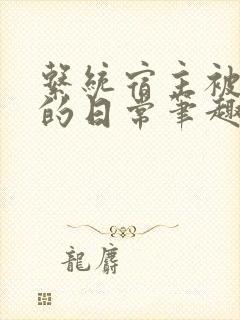 繫統宿主被
的日常筆趣
龍麝